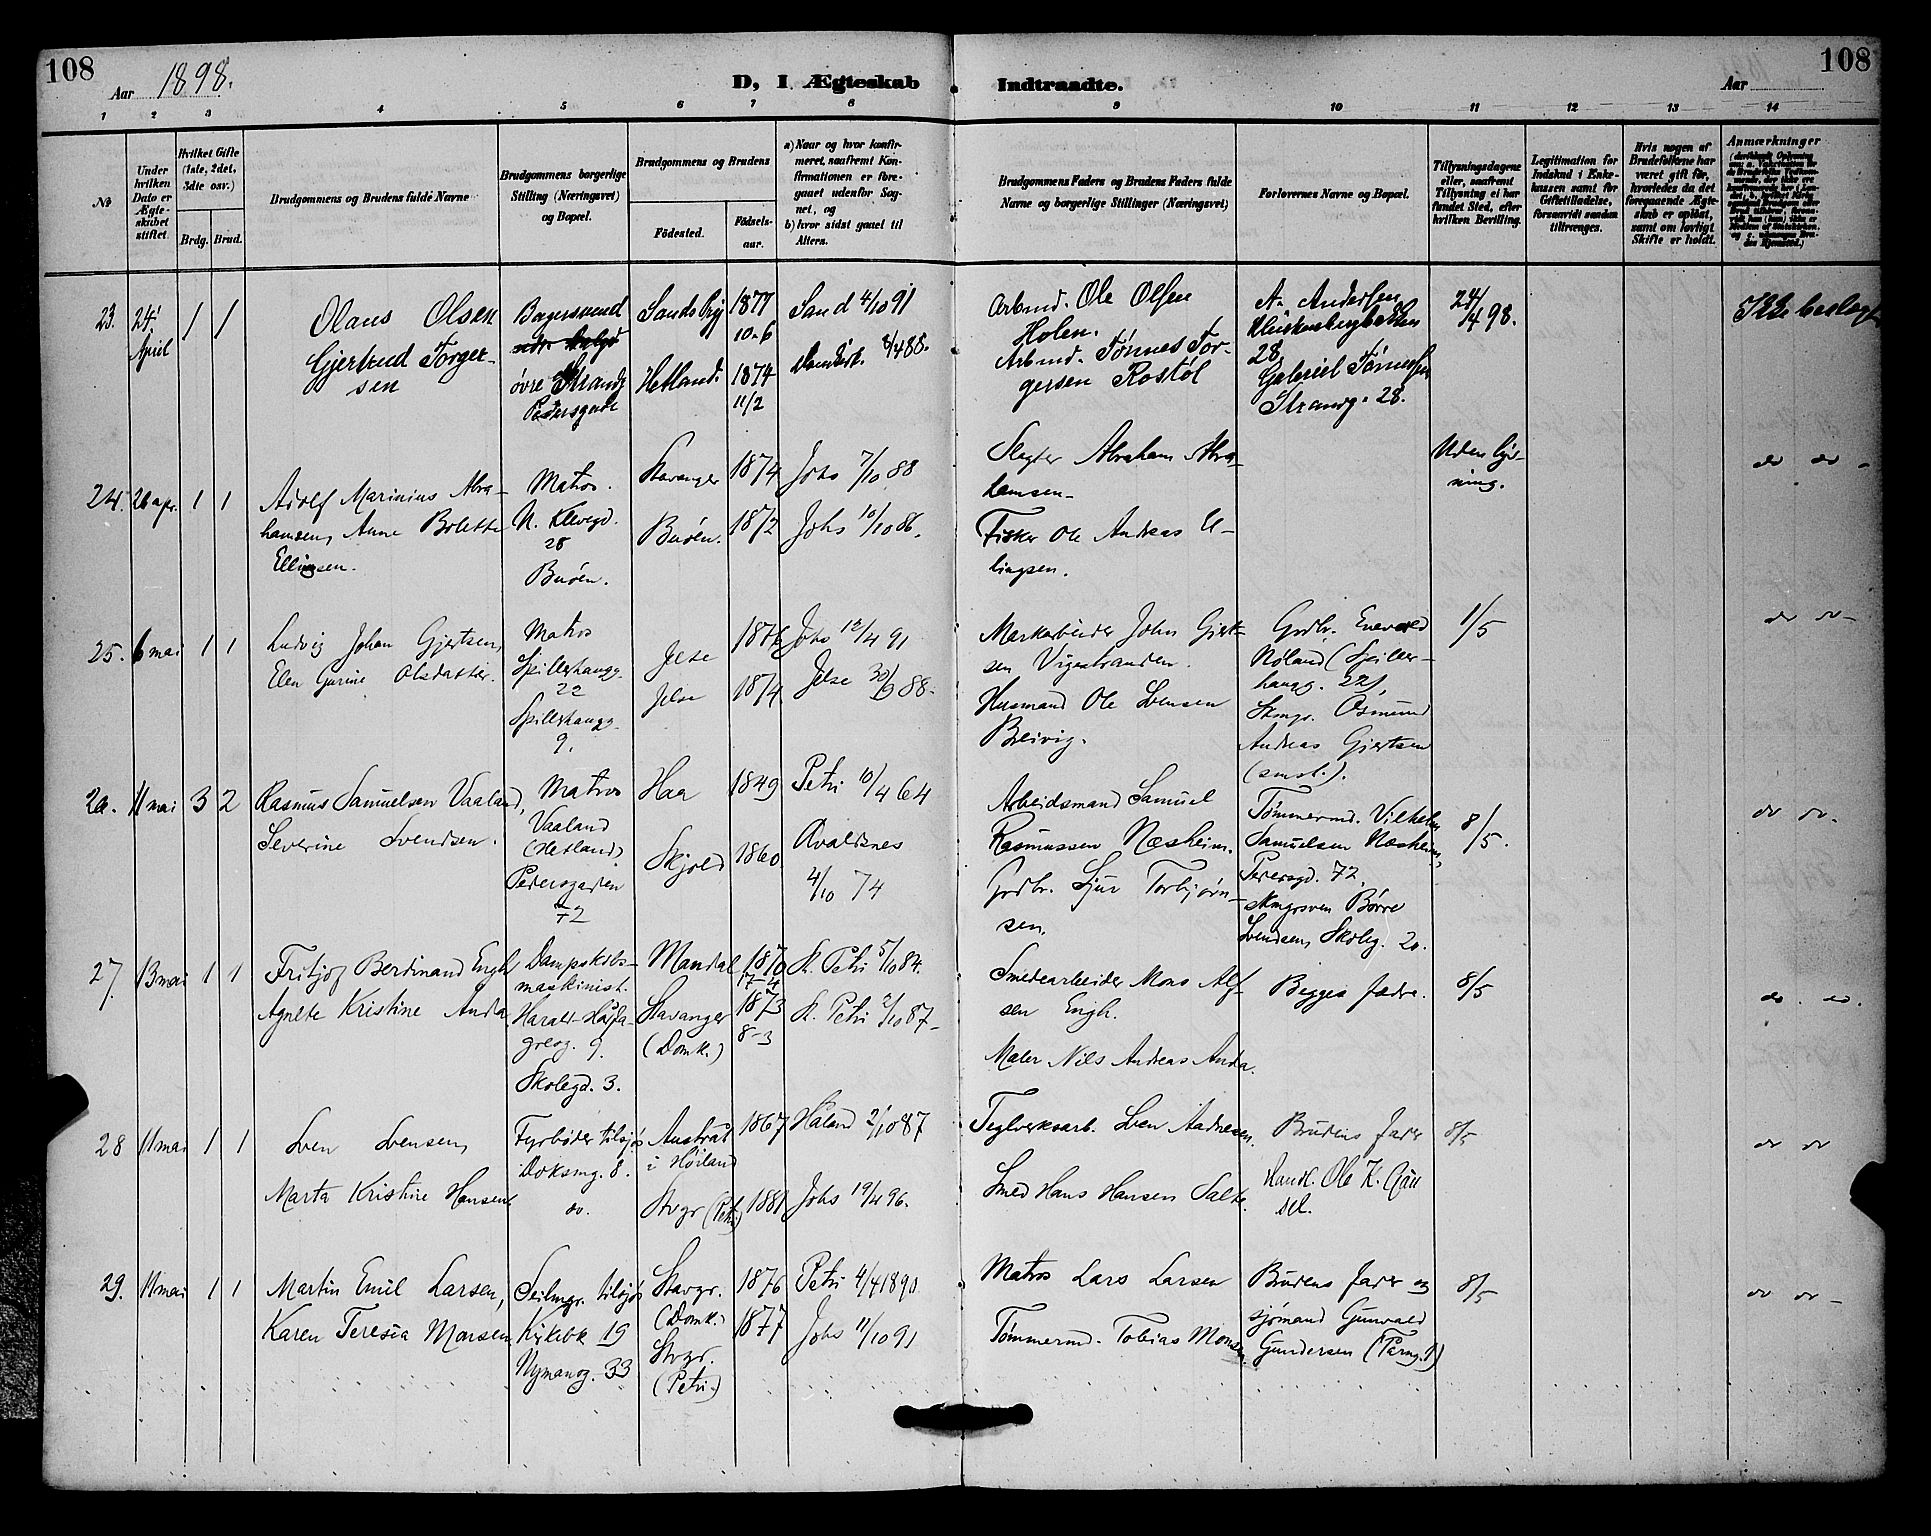 108
Aar 1898.
D, I Ægteskab Indtraadte.
Aar
108
1 2 3 4 5 6 7 8 9 10 11 12 13 14
No
Under hvilken Dato er Ægteskabet stiftet.
Hvilket Gifte (1ste, 2det, 3die osv.)
Brdg. Brud.
Brudgommens og Brudens fulde Navne
Brudgommens borgerlige Stilling (Næringsvei) og Bopæl.
Brudgommens og Brudens
Fødested. Fødselsaar.
a) Naar og hvor konfirmeret, saafremt Konfirmationen er foregaaet udenfor Sognet, og
b) hvor sidst gaaet til Alters.
Brudgommens Faders og Brudens Faders fulde Navne og borgerlige Stillinger (Næringsvei)
Forlovernes Navne og Bopæl.
Tillysningsdagene eller, saafremt Tillysning ei har fundet Sted, efter hvilken Bevilling.
Legitimation for Indskud i Enkekassen samt for Giftetilladelse, forsaavidt saadan tiltrænges.
Hvis nogen af Brudefolkene har været gift før, hvorledes da det foregaaende Ægteskab er opløst, samt om lovligt Skifte er holdt.
Anmærkninger
23. 24' April 1 1
Olaus Olsen
Gjertrud Torgersen
Bagersvend
øvre Strandg
Pedersgade
Hetland. 1874 11/2
Sand 4/10 91
Domkirk. 8/4 88.
Arbmd. Ole Olsen
Holen.
Arbmd. Tønnes Torgersen Rostøl
A. Andersen
28
Gabriel Tønnesen
Strandg. 28.
24/4 98.
Ikke beslægt
24. 26 apr. 1 1
Adolf Marinius Abrahamsen, Anne Bolette
Ellingsen.
Matros.
N. Klevegd.
28
Buøen.
Stavanger 1874
Buøen. 1872
Johs 7/10 88
Johs 10/10 86.
Slagter Abraham Abrahamsen
Fisker Ole Andreas Ellingsen.
Uden lysning.
do do
25. 6 mai 1 1
Ludvig Johan Gjertsen,
Elen Gurine Olsdatter.
Matros
Spilderhaugg.
22
Spilderhaugg.
9.
Jelse 1876
Jelse 1874
Johs 12/4 91
Jelse 30/9 88.
Markarbeider John Gjertsen Vigestranden.
Husmand Ole Svensen
Breivig.
Grdbr. Enevald
Nøland (Spilderhaugg. 22),
Osmund
Andreas Gjertsen
(smst.).
1/5
do do
11 mai 3 2
Rasmus Samuelsen Vaaland,
Severine Svendsen.
Matros
Vaaland
(Hetland),
Pedersgaden
72
Haa 1849
Skjold 1860
Petri 10/4 64
Avaldsnes
4/10 74
Arbeidsmand Samuel
Rasmussen Næsheim.
Grdbr. Sjur Torbjørnsen.
Tømmermd. Vilhelm
Samuelsen Næsheim,
Pedersgd. 72,
Børre
Svendsen, Skoleg. 20.
8/5.
do do.
27. 13 mai 1 1
Fritjof Berdinand Engh,
Agnete Kristine Anda
Dampskibsmaskinist.
Harald Haarfagresg. 9.
Skolegd. 3.
Mandal 1870 17-4
Stavanger (Domk.) 1873 8-3
St. Petri 5/10 84.
St. Petri 2/10 87
Smedearbeider Mons Alfsen Engh.
Maler Nils Andreas Anda.
Begges fædre.
8/5
do. do.
28 11 mai 1 1
Sven Svensen,
Marta Kristine Hansen.
Fyrbøder tilsjøs
Doksmg. 8.
do.
Austrat
i Høiland 1867
Stvgr (Petri) 1881
Håland 2/10 87
Johs 19/4 96.
Teglverksarb. Sven Andresen.
Smed Hans Hansen Salte.
Brudens fader
Handl. Ole K.
8/5
do do
29. 11 mai 1 1
Martin Emil Larsen,
Karen Teresia Monsen.
Seilmgr. tilsjøs
Kirkebk 19
Nymansg. 33
Stavgr. (Domk.) 1876
Stvgr. (Petri.) 1877
Petri 4/4 1890
Johs 11/10 91
Matros Lars Larsen
Tømmermd. Tobias Monsen.
Brudens fader og
sjømand Gunvald
Gundersen (Tarng. 1)
8/5
do do